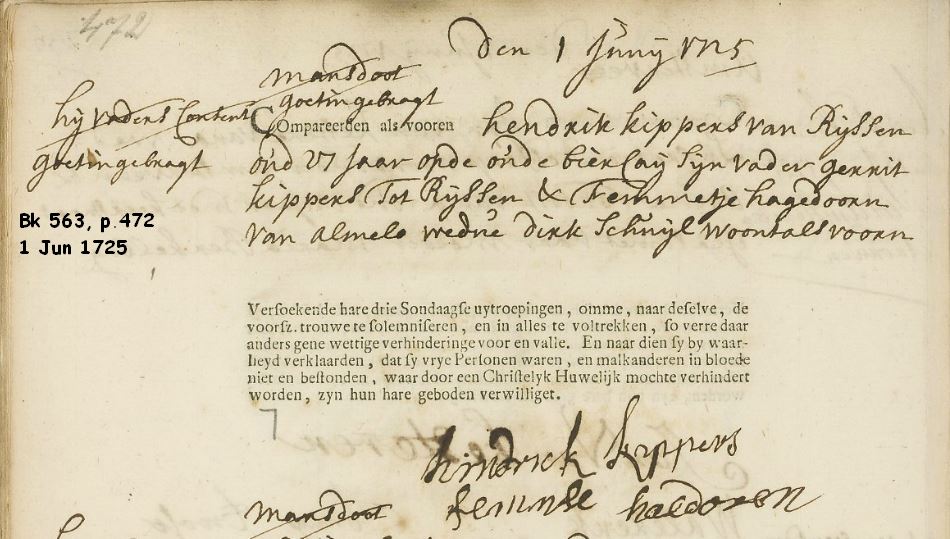 472
Den 1 Junij 1725
mansdoot
goetingebragt
hij vaders Consent
goetingebragt
Compareerden als vooren hendrik kippers van Ryssen
oud 27 Jaar op de oude bier Caij Syn vader gerrit
kippers Tot Ryssen & Femmetje hagedoorn
van almelo wedue dirk Schuyl woont als voorn
Bk 563, p.472
1 Jun 1725
Versoekende hare drie Sondaagse uytroepingen, omme, naar deselve, de
voorsz. trouwe te solemniseren, en in alles te voltrekken, so verre daar
anders gene wettige verhinderinge voor en valle. En naar dien sy by waar-
heyd verklaarden, dat sy vrye Personen waren, en malkanderen in bloede
niet en bestonden, waar door een Christelyk Huwelijk mochte verhindert
worden, zyn hun hare geboden verwilliget.
hindrick kippers
mansdoot femme haedoren